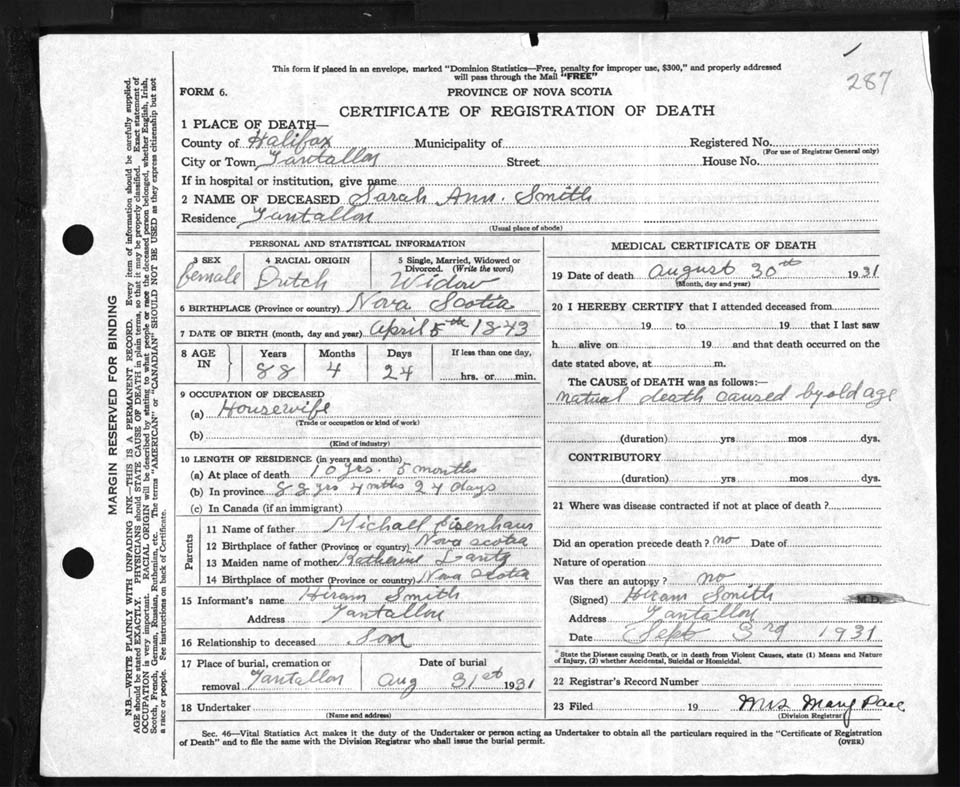 287
This form if placed in an envelope, marked "Dominion Statistics—Free, penalty for improper use, $300," and properly addressed
will pass through the Mail "FREE"
FORM 6. PROVINCE OF NOVA SCOTIA
CERTIFICATE OF REGISTRATION OF DEATH
1 PLACE OF DEATH—
County of Halifax Municipality of Registered No.
(For use of Registrar General only)
City or Town Tantallon Street House No.
If in hospital or institution, give name
2 NAME OF DECEASED Sarah Ann. Smith
Residence Tantallon
(Usual place of abode)
PERSONAL AND STATISTICAL INFORMATION
3 SEX 4 RACIAL ORIGIN 5 Single, Married, Widowed or
Divorced. (Write the word)
Female Dutch Widow
6 BIRTHPLACE (Province or country) Nova Scotia
7 DATE OF BIRTH (month, day and year) April 5th 1843
8 AGE IN Years Months Days If less than one day,
88 4 24 hrs. or min.
9 OCCUPATION OF DECEASED
(a) Housewife
(Trade or occupation or kind of work)
(b)
(Kind of industry)
10 LENGTH OF RESIDENCE (in years and months)
(a) At place of death 10 yrs. 5 months
(b) In province 88 yrs 4 mths 24 days
(c) In Canada (if an immigrant)
Parents
11 Name of father Michall Eisenhaur
12 Birthplace of father (Province or country) Nova Scotia
13 Maiden name of mother Katherine
14 Birthplace of mother (Province or country) Nova Scotia
15 Informant's name Hiram Smith
Address Tantallon
16 Relationship to deceased Son
17 Place of burial, cremation or Date of burial
removal Tantallon Aug 31st 1931
18 Undertaker
(Name and address)
MEDICAL CERTIFICATE OF DEATH
19 Date of death August 30th 1931
(Month, day and year)
20 I HEREBY CERTIFY that I attended deceased from
19 to 19 that I last saw
h alive on 19 and that death occurred on the
date stated above, at m.
The CAUSE of DEATH was as follows:—
natural death caused by old age
(duration) yrs mos dys.
CONTRIBUTORY
(duration) yrs mos dys.
21 Where was disease contracted if not at place of death?
Did an operation precede death? no Date of
Nature of operation
Was there an autopsy? no
(Signed) Hiram Smith M.D.
Address Tantallon
Date Sept 3rd 1931
*State the Disease causing Death, or in death from Violent Causes, state (1) Means and Nature
of Injury, (2) whether Accidental, Suicidal or Homicidal.
22 Registrar's Record Number
23 Filed 19 Mrs Mary
(Division Registrar)
Sec. 46—Vital Statistics Act makes it the duty of the Undertaker or person acting as Undertaker to obtain all the particulars required in the "Certificate of Registration
of Death" and to file the same with the Division Registrar who shall issue the burial permit. (OVER)
MARGIN RESERVED FOR BINDING
N.B.—WRITE PLAINLY WITH UNFADING INK—THIS IS A PERMANENT RECORD. Every item of information should be carefully supplied.
AGE should be stated EXACTLY. PHYSICIANS should STATE CAUSE OF DEATH in plain terms, so that it may be properly classified. Exact statement of
OCCUPATION is very important. RACIAL ORIGIN will be described by stating to what people or race the deceased person belonged, whether English, Irish,
Scotch, French, German, Russian, Ruthenian, etc. The terms "AMERICAN" or "CANADIAN" SHOULD NOT BE USED as they express citizenship but not
a race or people. See instructions on back of Certificate.